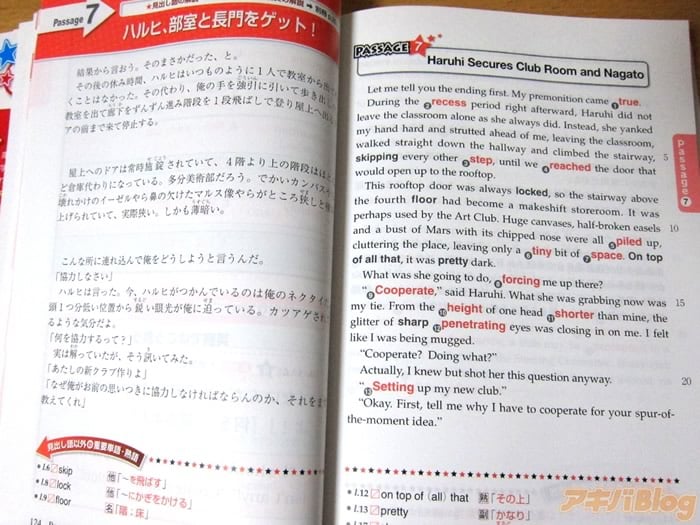 Passage 7
ハルヒ、部室と長門をゲット！
結果から言おう。そのまさかだった、と。
その後の休み時間、ハルヒはいつものように１人で教室から出
くことはなかった。その代わり、俺の手を強引に引いて歩き出し
教室を出て廊下をずんずん進み階段を１段飛ばしで登り屋上へ出
アの前まで来て停止する。
屋上へのドアは常時施錠されていて、４階より上の階段はほ
ど倉庫代わりになっている。多分美術部だろう。でかいカンバス
壊れかけのイーゼルやら鼻の欠けたマルス像やらがところ狭しと
上げられていて、実際狭い。しかも薄暗い。
こんな所に連れ込んで俺をどうしようと言うんだ。
「協力しなさい」
ハルヒは言った。今、ハルヒがつかんでいるのは俺のネクタイ
頭１つ分低い位置から鋭い眼光が俺に迫っている。カツアゲされ
るような気分だよ。
「何を協力するって？」
実は解っていたが、そう訊いてみた。
「あたしの新クラブ作りよ」
「なぜ俺がお前の思いつきに協力しなければならんのか、それをま
教えてくれ」
見出し語以外の重要単語・熟語
l.6 skip 他「〜を飛ばす」
l.8 lock 他「〜にかぎをかける」
l.9 floor 名「階；床」
124
PASSAGE 7
Haruhi Secures Club Room and Nagato
Let me tell you the ending first. My premonition came ①true.
During the ②recess period right afterward, Haruhi did not
leave the classroom alone as she always did. Instead, she yanked
my hand hard and strutted ahead of me, leaving the classroom,
walked straight down the hallway and climbed the stairway, 5
skipping every other ③step, until we ④reached the door that
would open up to the rooftop.
This rooftop door was always locked, so the stairway above
the fourth floor had become a makeshift storeroom. It was
perhaps used by the Art Club. Huge canvases, half-broken easels 10
and a bust of Mars with its chipped nose were all ⑤piled up,
cluttering the place, leaving only a ⑥tiny bit of ⑦space. On top
of all that, it was pretty dark.
What was she going to do, ⑧forcing me up there?
“⑨Cooperate,” said Haruhi. What she was grabbing now was 15
my tie. From the ⑩height of one head ⑪shorter than mine, the
glitter of sharp ⑫penetrating eyes was closing in on me. I felt
like I was being mugged.
“Cooperate? Doing what?”
Actually, I knew but shot her this question anyway. 20
“⑬Setting up my new club.”
“Okay. First, tell me why I have to cooperate for your spur-of-
the-moment idea.”
passage 7
l.12 on top of (all) that 熟「その上」
l.13 pretty 副「かなり」
アキバBlog